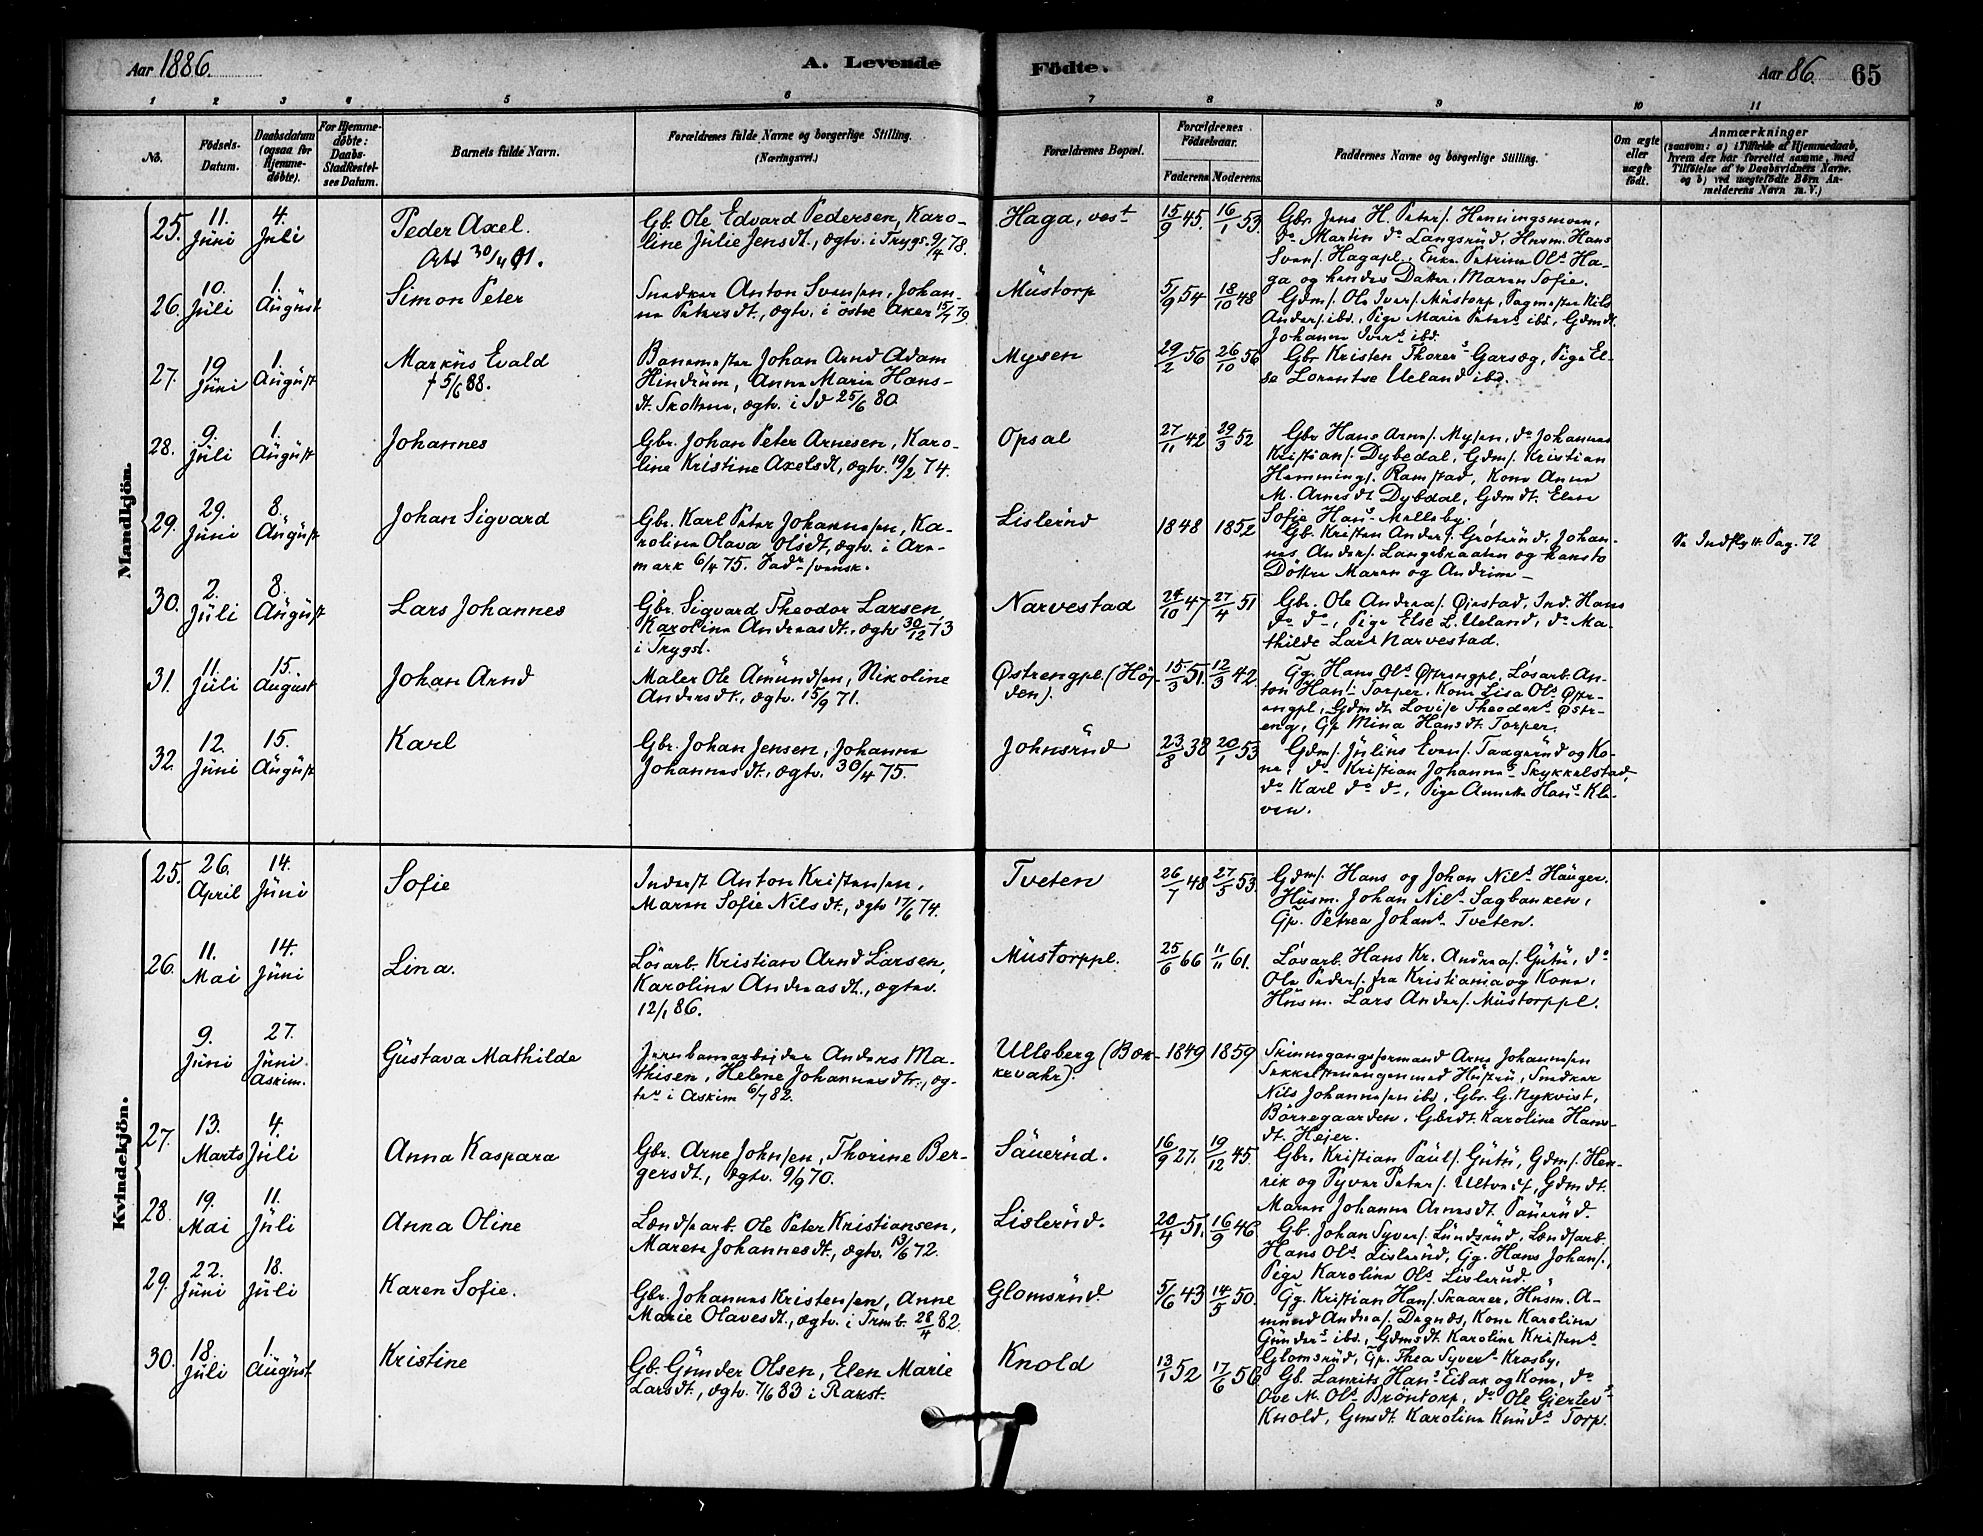 Aar 1886.
A. Levende
Födte.
Aar 86.
65
1 2 3 4 5 6 7 8 9 10 11
No.
Födsels-
Datum.
Daabsdatum
(ogsaa for
Hjemme-
døbte).
For Hjemme-
døbte:
Daabs-
Stadfæstel-
ses Datum.
Barnets fulde Navn.
Forældrenes fulde Navne og borgerlige Stilling.
(Næringsvei.)
Forældrenes Bopæl.
Forældrenes
Födselsaar.
Faderens Moderens
Faddernes Navne og borgerlige Stilling.
Om ægte
eller
uægte
født.
Anmærkninger
(saasom: a) i Tilfælde af Hjemmedaab,
hvem der har forrettet samme, med
Tilføielse af to Daabsvidners Navne,
og b) ved uægtefödte Börn An-
melderens Navn m. V.)
Mandkjön.
25.
11.
Juni
4.
Juli
Peder Axel.
Att 30/4 01.
Gb. Ole Edvard Pedersen, Karo-
line Julie Jensdt., ægtv. i Trygs. 9/4 78.
Haga, vest
15/9 45.
16/1 53.
Gbr. Jens H. Peters. Henningsmoen,
do Martin do Langsrud, Husm. Hans
Svens. Hagapl., Enke Petrine Ols Ha-
ga og hendes Datter Maren Sofie.
26.
10.
Juli
1.
August
Simon Peter
Snedker Anton Svensen, Johan-
ne Petersdt., ægtv. i östre Aker 15/7 79.
Mustorp
5/9 54
18/10 48
Gdms. Ole Ivers. Mustorp, Pagmester Nils
Anders. ibd., Pige Marie Peters ibd., Gdmdt.
Johanne Ivers ibd.
27.
19
Juni
1.
August
Markus Evald
† 5/6 88.
Banemester Johan Arnd Adam
Hindrum, Anne Marie Hans-
dt. Skottene, ægtv. i Sd 25/6 80.
Mysen
29/2 56
26/10 56
Gbr Kristen Thorers Garseg, Pige El-
se Lorentse Ueland ibd.
28.
9.
Juli
1.
August
Johannes
Gbr. Johan Peter Arnesen, Karo-
line Kristine Axelsdt, ægtv. 19/2 74.
Opsal
27/11 42
29/3 52
Gbr Hans Arnes. Mysen, do Johannes
Kristians. Dybedal, Gdms. Kristian
Hemmings. Ramstad, Kone Anne
M. Arnesdt Dybdal, Gdmdt. Elene
Sofie Hans Melleby.
29.
29.
Juni
8.
August
Johan Sigvard
Gbr. Karl Peter Johannesen, Ka-
roline Olava Olsdt, ægtv. i Are-
mark 6/4 75. Fadr svensk.
Lislerud
1848
1852
Gb. Kristen Anders. Grøterud, Johan-
nes Anders. Langebraaten og hans to
Döttre Maren og Andrine –
Se Indflytt. Pag. 72
30.
2.
Juli
8.
August
Lars Johannes
Gbr. Sigvard Theodor Larsen
Karoline Andreasdt., ægtv 30/12 73
i Trygst.
Narvestad
24/10 47
27/4 51
Gbr. Ole Andreas. Øiestad, Ind. Hans
do do, Pige Else L. Ueland, do Ma-
thilde Lars Narvestad.
31.
11.
Juli
15.
August
Johan Arnd
Maler Ole Amundsen, Nikoline
Andersdt., ægtv. 15/9 71.
Østrengpl. (Höy-
den).
15/3 51.
12/3 42
Gg. Hans Ols Østrengpl., Løsarb. An-
ton Hans. Torper, Kone Lisa Ols Østr-
engpl., Gdmdt Lovise Theodors Østr-
eng, Gp Mina Hansdt Torper.
32.
12.
Juni
15.
August
Karl
Gbr. Johan Jensen, Johanne
Johannesdt., ægtv. 30/4 75.
Johnsrud
23/8 38
20/1 53
Gdms. Julius Evens. Taagerud og Ko-
ne, do Kristian Johannes Skykkelstad,
do Karl do do, Pige Annette Hans Kle-
ven.
Kvindekjön.
25.
26.
April
14.
Juni
Sofie
Inderst Anton Kristensen,
Maren Sofie Nilsdt., ægtv 17/6 74.
Tveten
26/7 48
27/5 53
Gdms. Hans og Johan Nils Hauger.
Husm. Johan Nils Sagbanken,
Gp. Petrea Johans Tveten.
26.
11.
Mai
14.
Juni
Lina.
Lösarb. Kristian Arnd Larsen,
Karoline Andreasdt., ægtev.
12/1 86.
Mustorppl.
25/6 66
11/11 61.
Lösarb. Hans Kr. Andreas. Gutu, do
Ole Peders. fra Kristiania og Kone,
Husm. Lars Anders. Mustorppl.
9.
Juni
27.
Juni
Askim.
Gustava Mathilde
Jernbanearbejder Anders Ma-
thisen, Helene Johannesdtr., æg-
tev i Askim 6/7 82.
Ulleberg (Bek-
kevahr).
1849
1859
Skinnegangsformand Arne Johannesen
Sekkelstenengen med Hustru, Snedker
Nils Johannesen ibd., Gbr. G. Nykvist,
Börregaarden, Gbrdt. Karoline Hans-
dt. Hejer.
27.
13.
Marts
4.
Juli
Anna Kaspara
Gbr. Arne Johnsen, Thorine Ber-
gersdt., ægtv. 9/9 70.
Sauerud.
16/9 27.
19/12 45.
Gbr. Kristian Pauls. Gutu, Gdms. Hen-
rik og Syver Peters. Ultvedt, Gdmdt.
Maren Johanne Arnesdt. Sauerud.
28.
19.
Mai
11.
Juli
Anna Oline
Lændsarb. Ole Peter Kristiansen,
Maren Johannesdt., ægtv. 13/6 72.
Lislerud.
20/4 51.
16/9 46
Gb. Johan Syvers. Lundsrud, Lændsarb.
Hans Ols Lislerud, Gg. Hans Johans.,
Pige Karoline Ols Lislerud.
29.
22.
Juni
18.
Juli
Karen Sofie.
Gbr. Johannes Kristensen, Anne
Marie Olavesdt., ægtv. i Trmb. 28/4 82.
Glomsrud
5/6 43
14/5 50.
Gg. Kristian Hans. Skaarer, Husm. A-
mund Andreas. Degnæs, Kone Karoline
Gunders ibd., Gdmsdt. Karoline Kristens
Glomsrud, Gp. Thea Syvers Krosby.
30.
18.
Juli
1.
August
Kristine
Gb. Gunder Olsen, Elen Marie
Larsdt., ægtv. 7/6 83 i Rakst.
Knold
13/1 52
17/6 56
Gb. Laurits Hans Eibak og Kone, do
Ove M. Ols Bröntorp, do Ole Gjerlevs
Knold, Gmsdt. Karoline Knuds Torp.